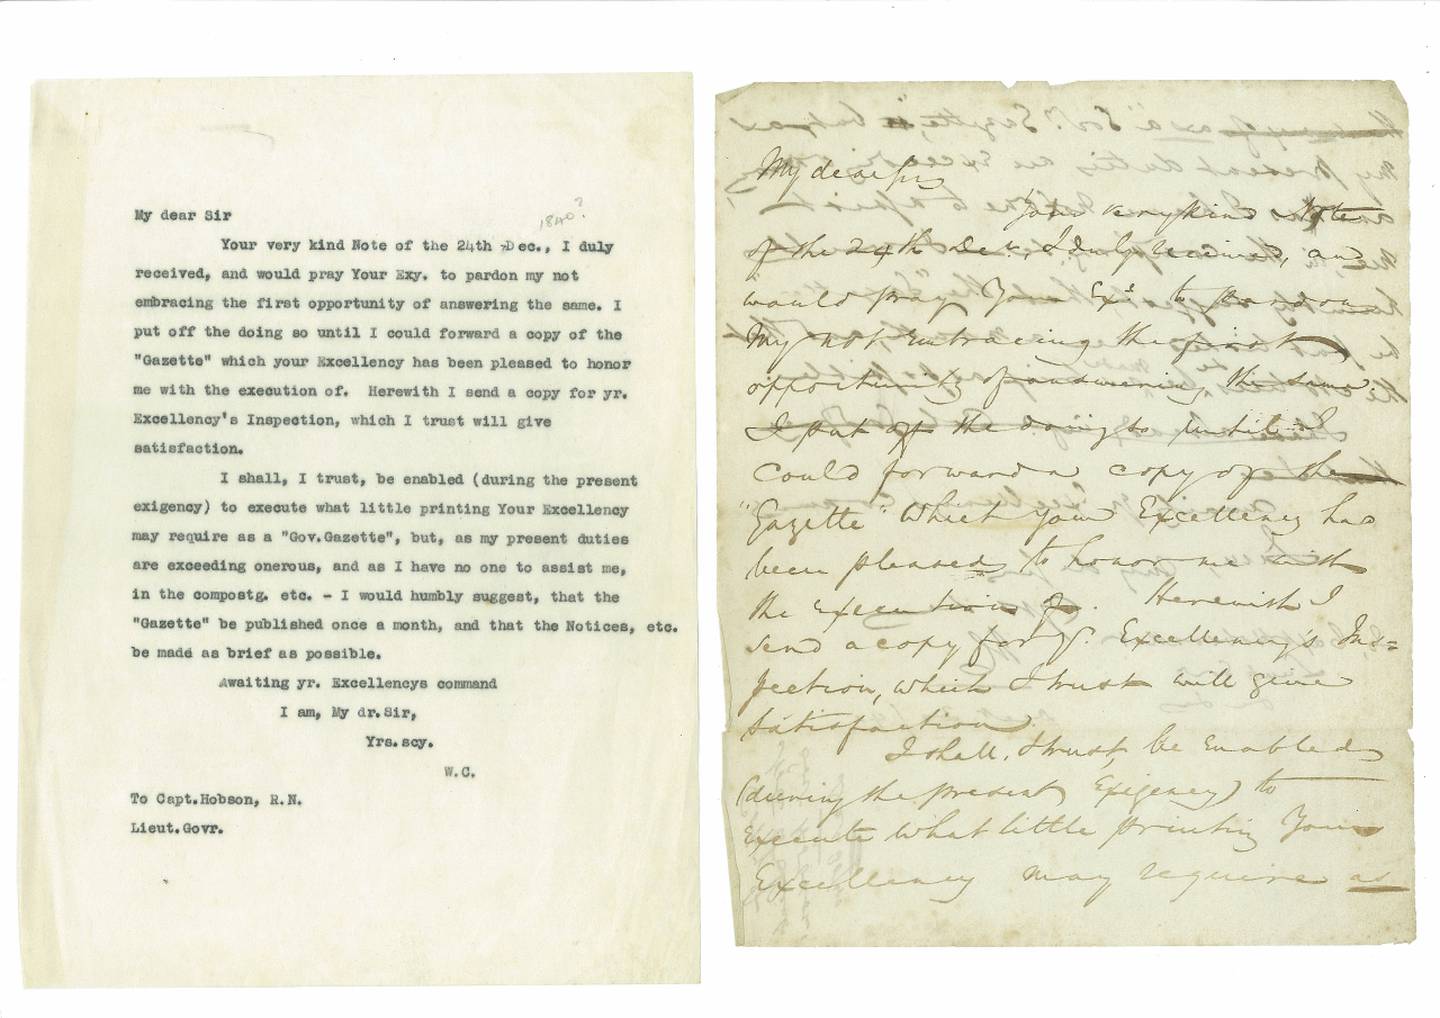 My dear Sir
1840?
Your very kind Note of the 24th Dec., I duly
received, and would pray Your Exy. to pardon my not
embracing the first opportunity of answering the same. I
put off the doing so until I could forward a copy of the
"Gazette" which your Excellency has been pleased to honor
me with the execution of. Herewith I send a copy for yr.
Excellency's Inspection, which I trust will give
satisfaction.
I shall, I trust, be enabled (during the present
exigency) to execute what little printing Your Excellency
may require as a "Gov.Gazette", but, as my present duties
are exceeding onerous, and as I have no one to assist me,
in the compostg. etc. - I would humbly suggest, that the
"Gazette" be published once a month, and that the Notices, etc.
be made as brief as possible.
Awaiting yr. Excellencys command
I am, My dr.Sir,
Yrs.scy.
W.C.
To Capt.Hobson, R.N.
Lieut.Govr.
My dear Sir
Your very kind Note
of the 24th Decr., I duly received, and
would pray Your Exy. to pardon
My not embracing the first
opportunity of answering the same.
I put off the doing so until I
could forward a copy of the
"Gazette" which your Excellency has
been pleased to honor me with
the execution of. Herewith I
send a copy for yr. Excellency's Ins=
pection, which I trust will give
satisfaction.
I shall, I trust, be enabled
(during the present Exigency) to
Execute what little printing Your
Excellency may require as